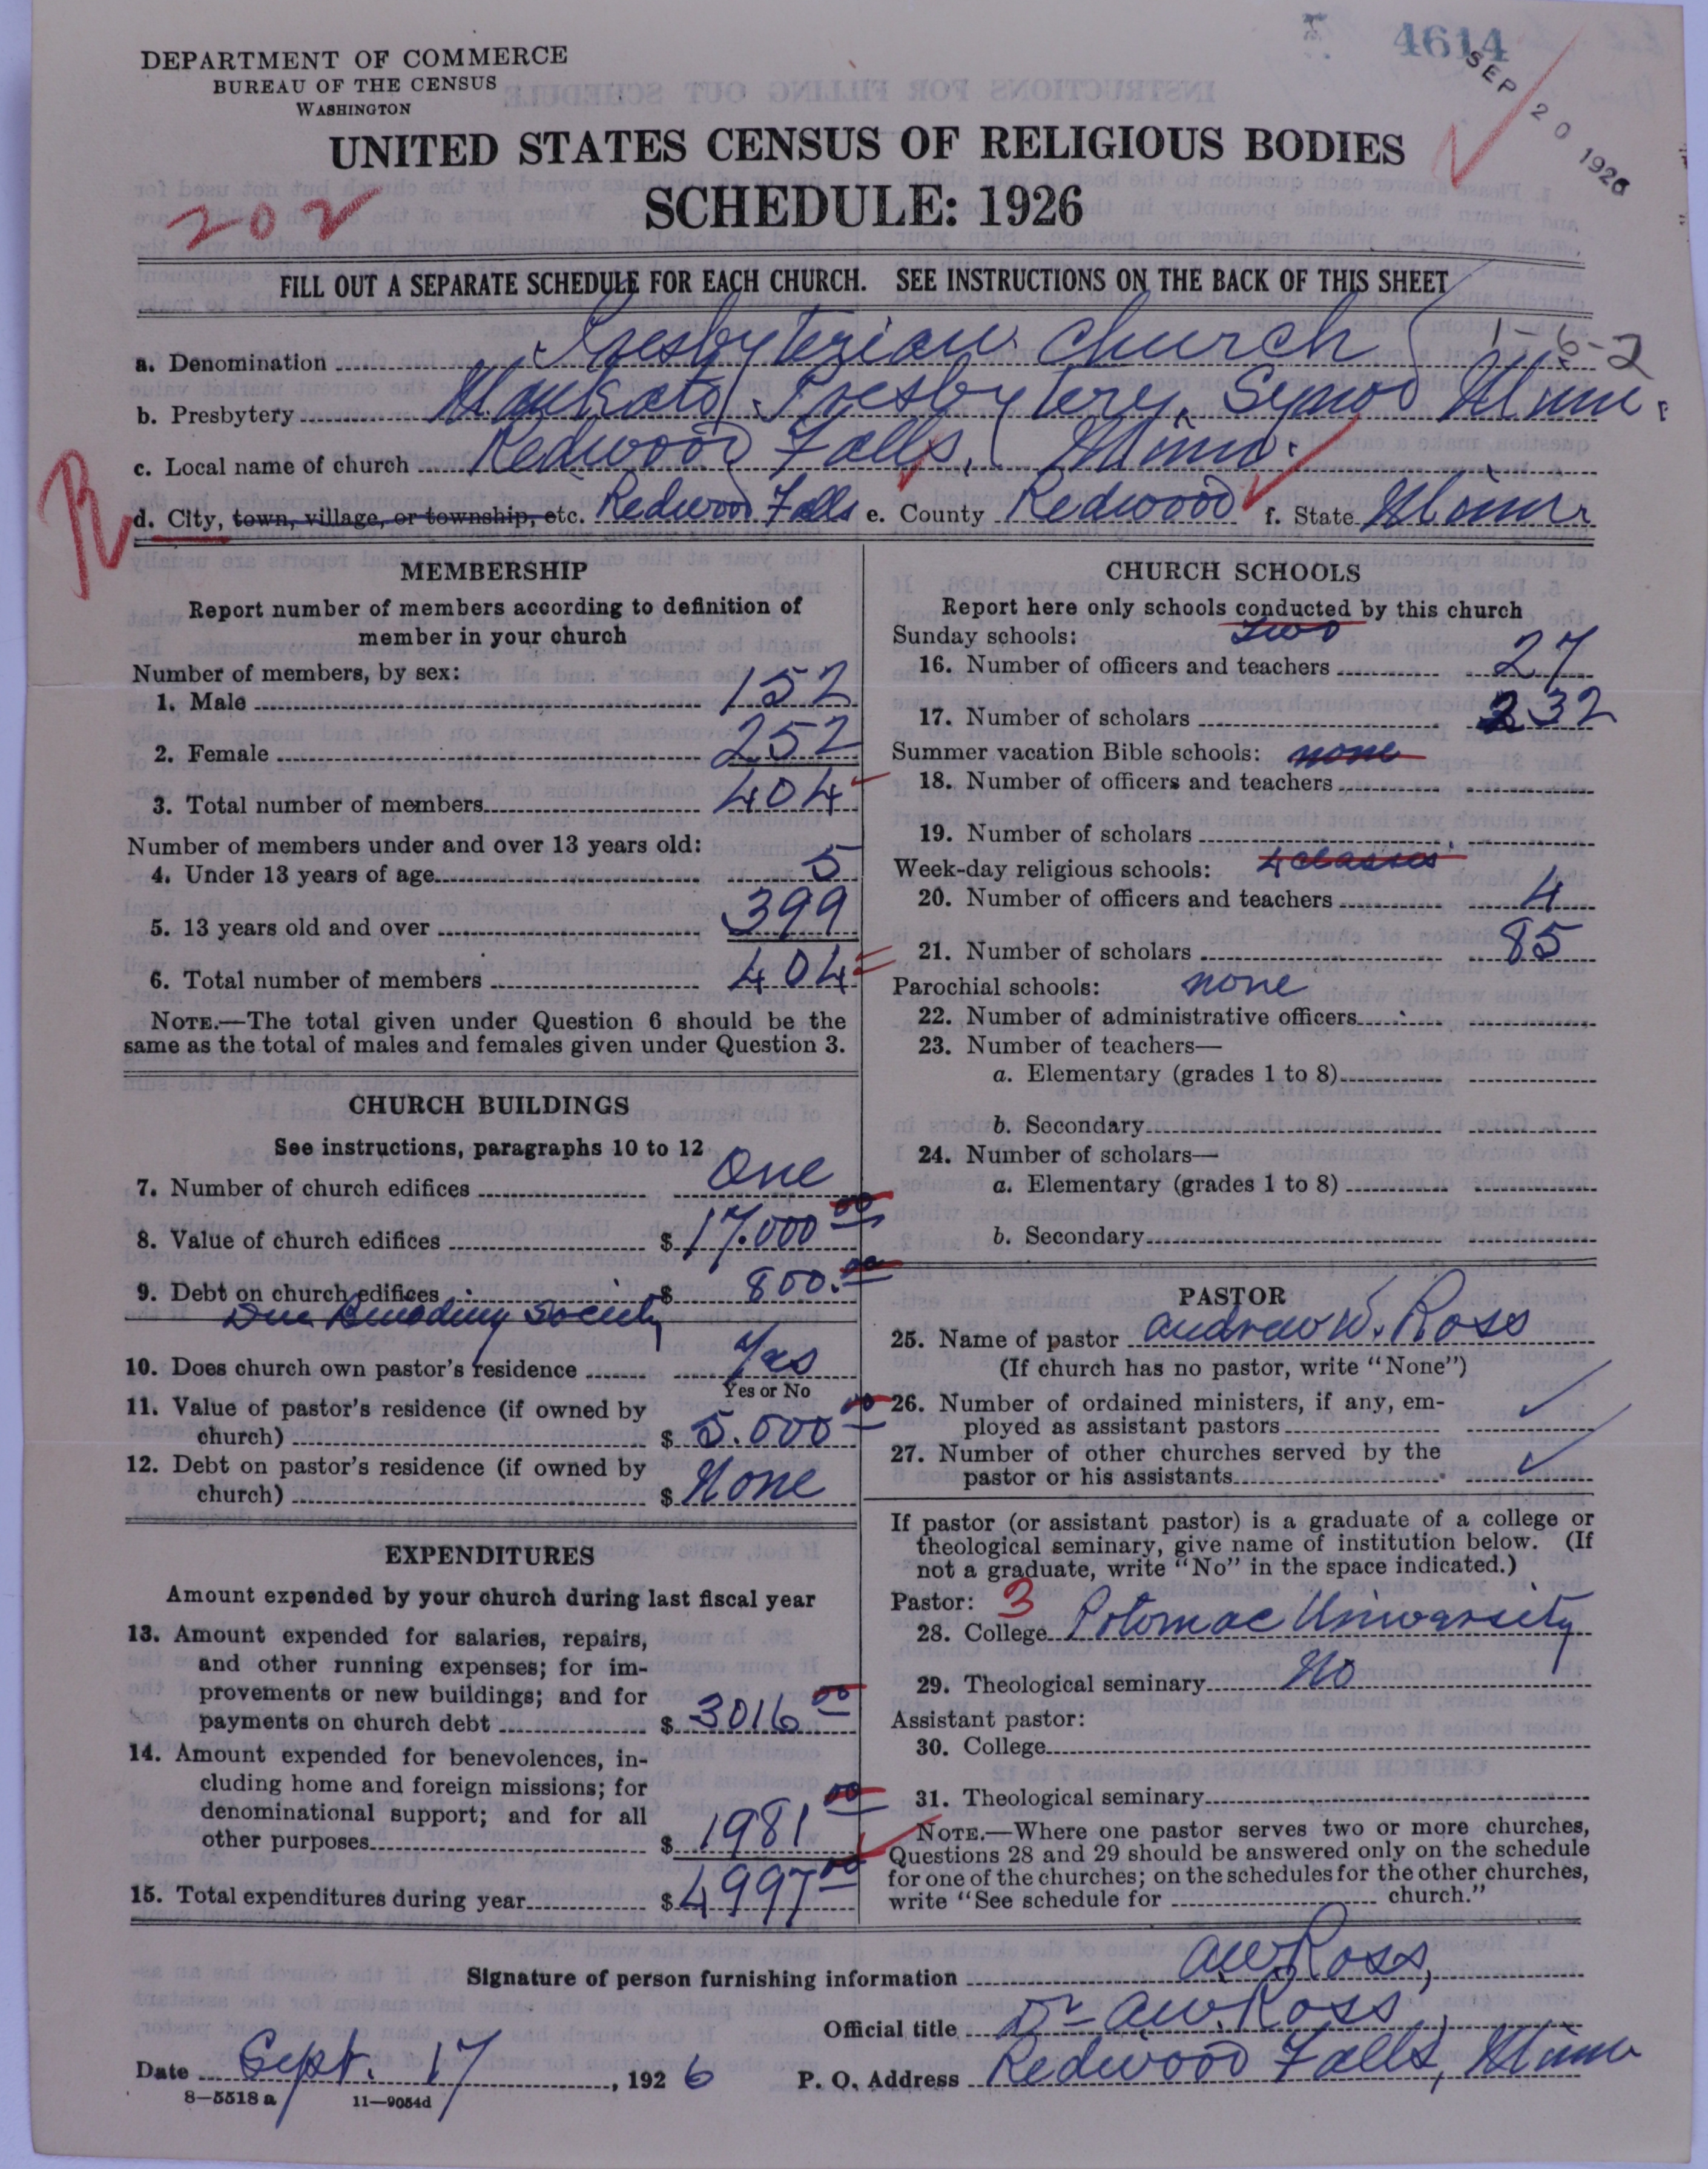 4614
SEP 20 1926
DEPARTMENT OF COMMERCE
BUREAU OF THE CENSUS
WASHINGTON
UNITED STATES CENSUS OF RELIGIOUS BODIES
SCHEDULE: 1926
202
FILL OUT A SEPARATE SCHEDULE FOR EACH CHURCH. SEE INSTRUCTIONS ON THE BACK OF THIS SHEET
1-6-2
a. Denomination Presbyterian Church
b. Presbytery Mankato Presbytery, Synod Minn.
c. Local name of church Redwood Falls, Minn.
d. City, town, village, or township, etc. Redwood Falls e. County Redwood f. State Minn
MEMBERSHIP
Report number of members according to definition of
member in your church
Number of members, by sex:
1. Male 152
2. Female 252
3. Total number of members 404
Number of members under and over 13 years old:
4. Under 13 years of age 5
5. 13 years old and over 399
6. Total number of members 404
NOTE.—The total given under Question 6 should be the
same as the total of males and females given under Question 3.
CHURCH BUILDINGS
See instructions, paragraphs 10 to 12
7. Number of church edifices One
8. Value of church edifices $ 17.000 00
9. Debt on church edifices $ 800.00
Due Society
10. Does church own pastor's residence Yes
Yes or No
11. Value of pastor's residence (if owned by
church) $ 5.000 00
12. Debt on pastor's residence (if owned by
church) $ None
EXPENDITURES
Amount expended by your church during last fiscal year
13. Amount expended for salaries, repairs,
and other running expenses; for im-
provements or new buildings; and for
payments on church debt $ 3016 00
14. Amount expended for benevolences, in-
cluding home and foreign missions; for
denominational support; and for all
other purposes $ 1981 00
15. Total expenditures during year $ 4997 00
CHURCH SCHOOLS
Report here only schools conducted by this church
Sunday schools: two
16. Number of officers and teachers 27
17. Number of scholars 232
Summer vacation Bible schools: none
18. Number of officers and teachers
19. Number of scholars
Week-day religious schools: 4 classes
20. Number of officers and teachers 4
21. Number of scholars 85
Parochial schools: none
22. Number of administrative officers
23. Number of teachers—
a. Elementary (grades 1 to 8)
b. Secondary
24. Number of scholars—
a. Elementary (grades 1 to 8)
b. Secondary
PASTOR
25. Name of pastor Andrew W. Ross
(If church has no pastor, write "None")
26. Number of ordained ministers, if any, em-
ployed as assistant pastors
27. Number of other churches served by the
pastor or his assistants
If pastor (or assistant pastor) is a graduate of a college or
theological seminary, give name of institution below. (If
not a graduate, write "No" in the space indicated.)
Pastor: 3
28. College Potomac University
29. Theological seminary No
Assistant pastor:
30. College
31. Theological seminary
NOTE.—Where one pastor serves two or more churches,
Questions 28 and 29 should be answered only on the schedule
for one of the churches; on the schedules for the other churches,
write "See schedule for church."
Signature of person furnishing information AW Ross,
Official title Dr AW. Ross,
Date Sept. 17, 1926 P. O. Address Redwood Falls, Minn
8-5518a 11-9054d